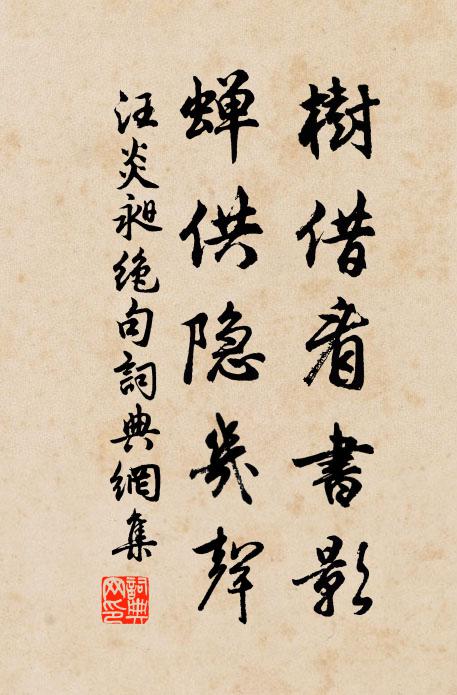 樹借看書影
蟬供隐幾聲
汪炎昶绝句詞典網集
詞典网印